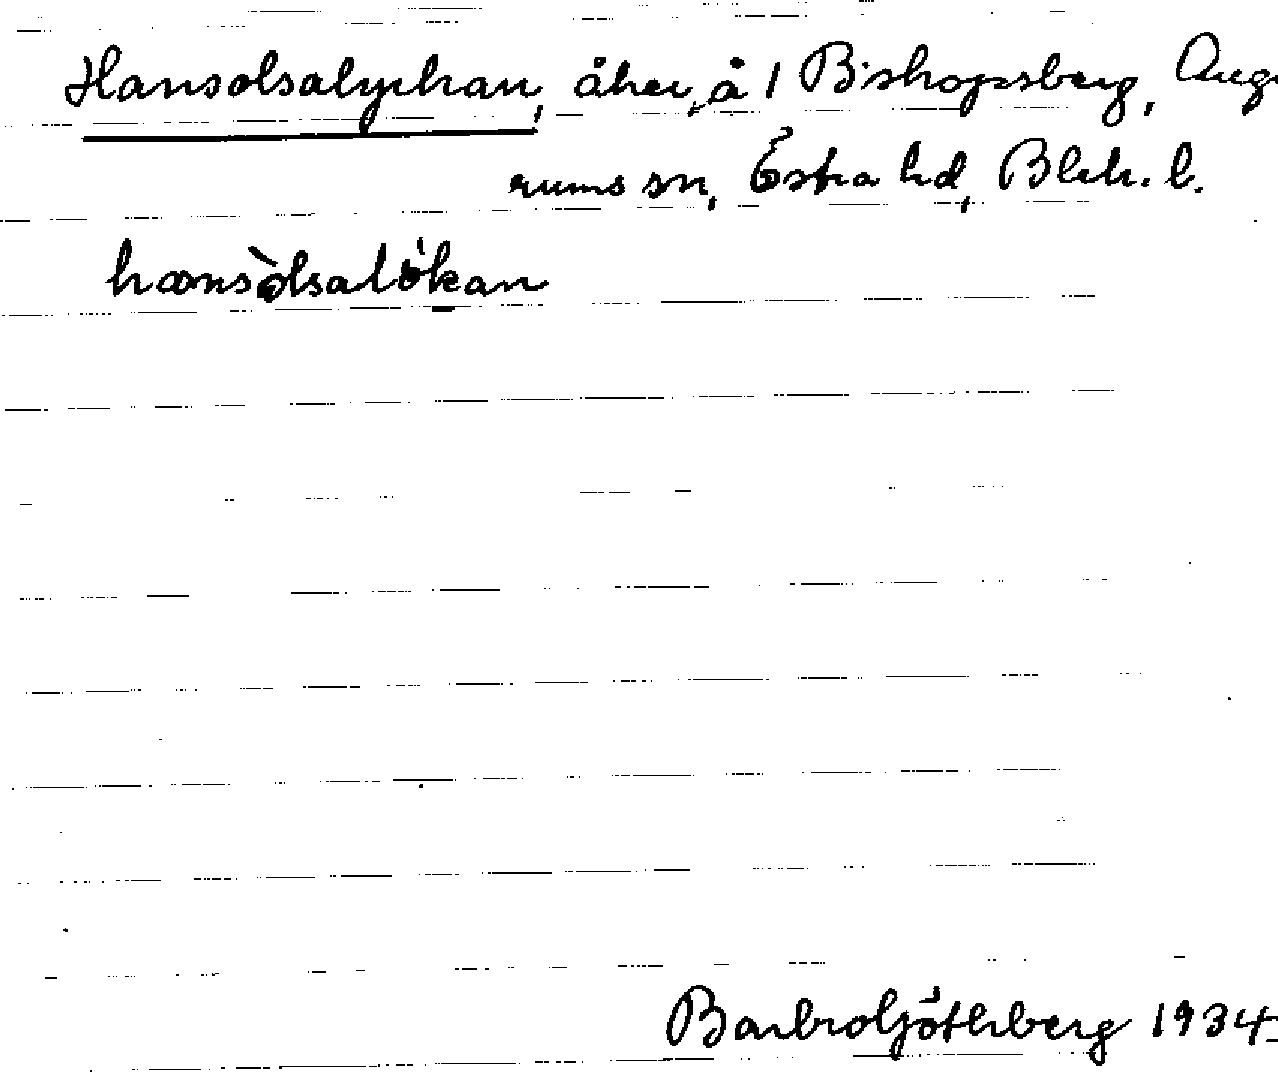 Hansolsalyckan, åker, å 1 Biskopsberg, Aug
rums sn, Östra hd, Blek. l.
hansòlsalökan
Barbro Göthberg 1934